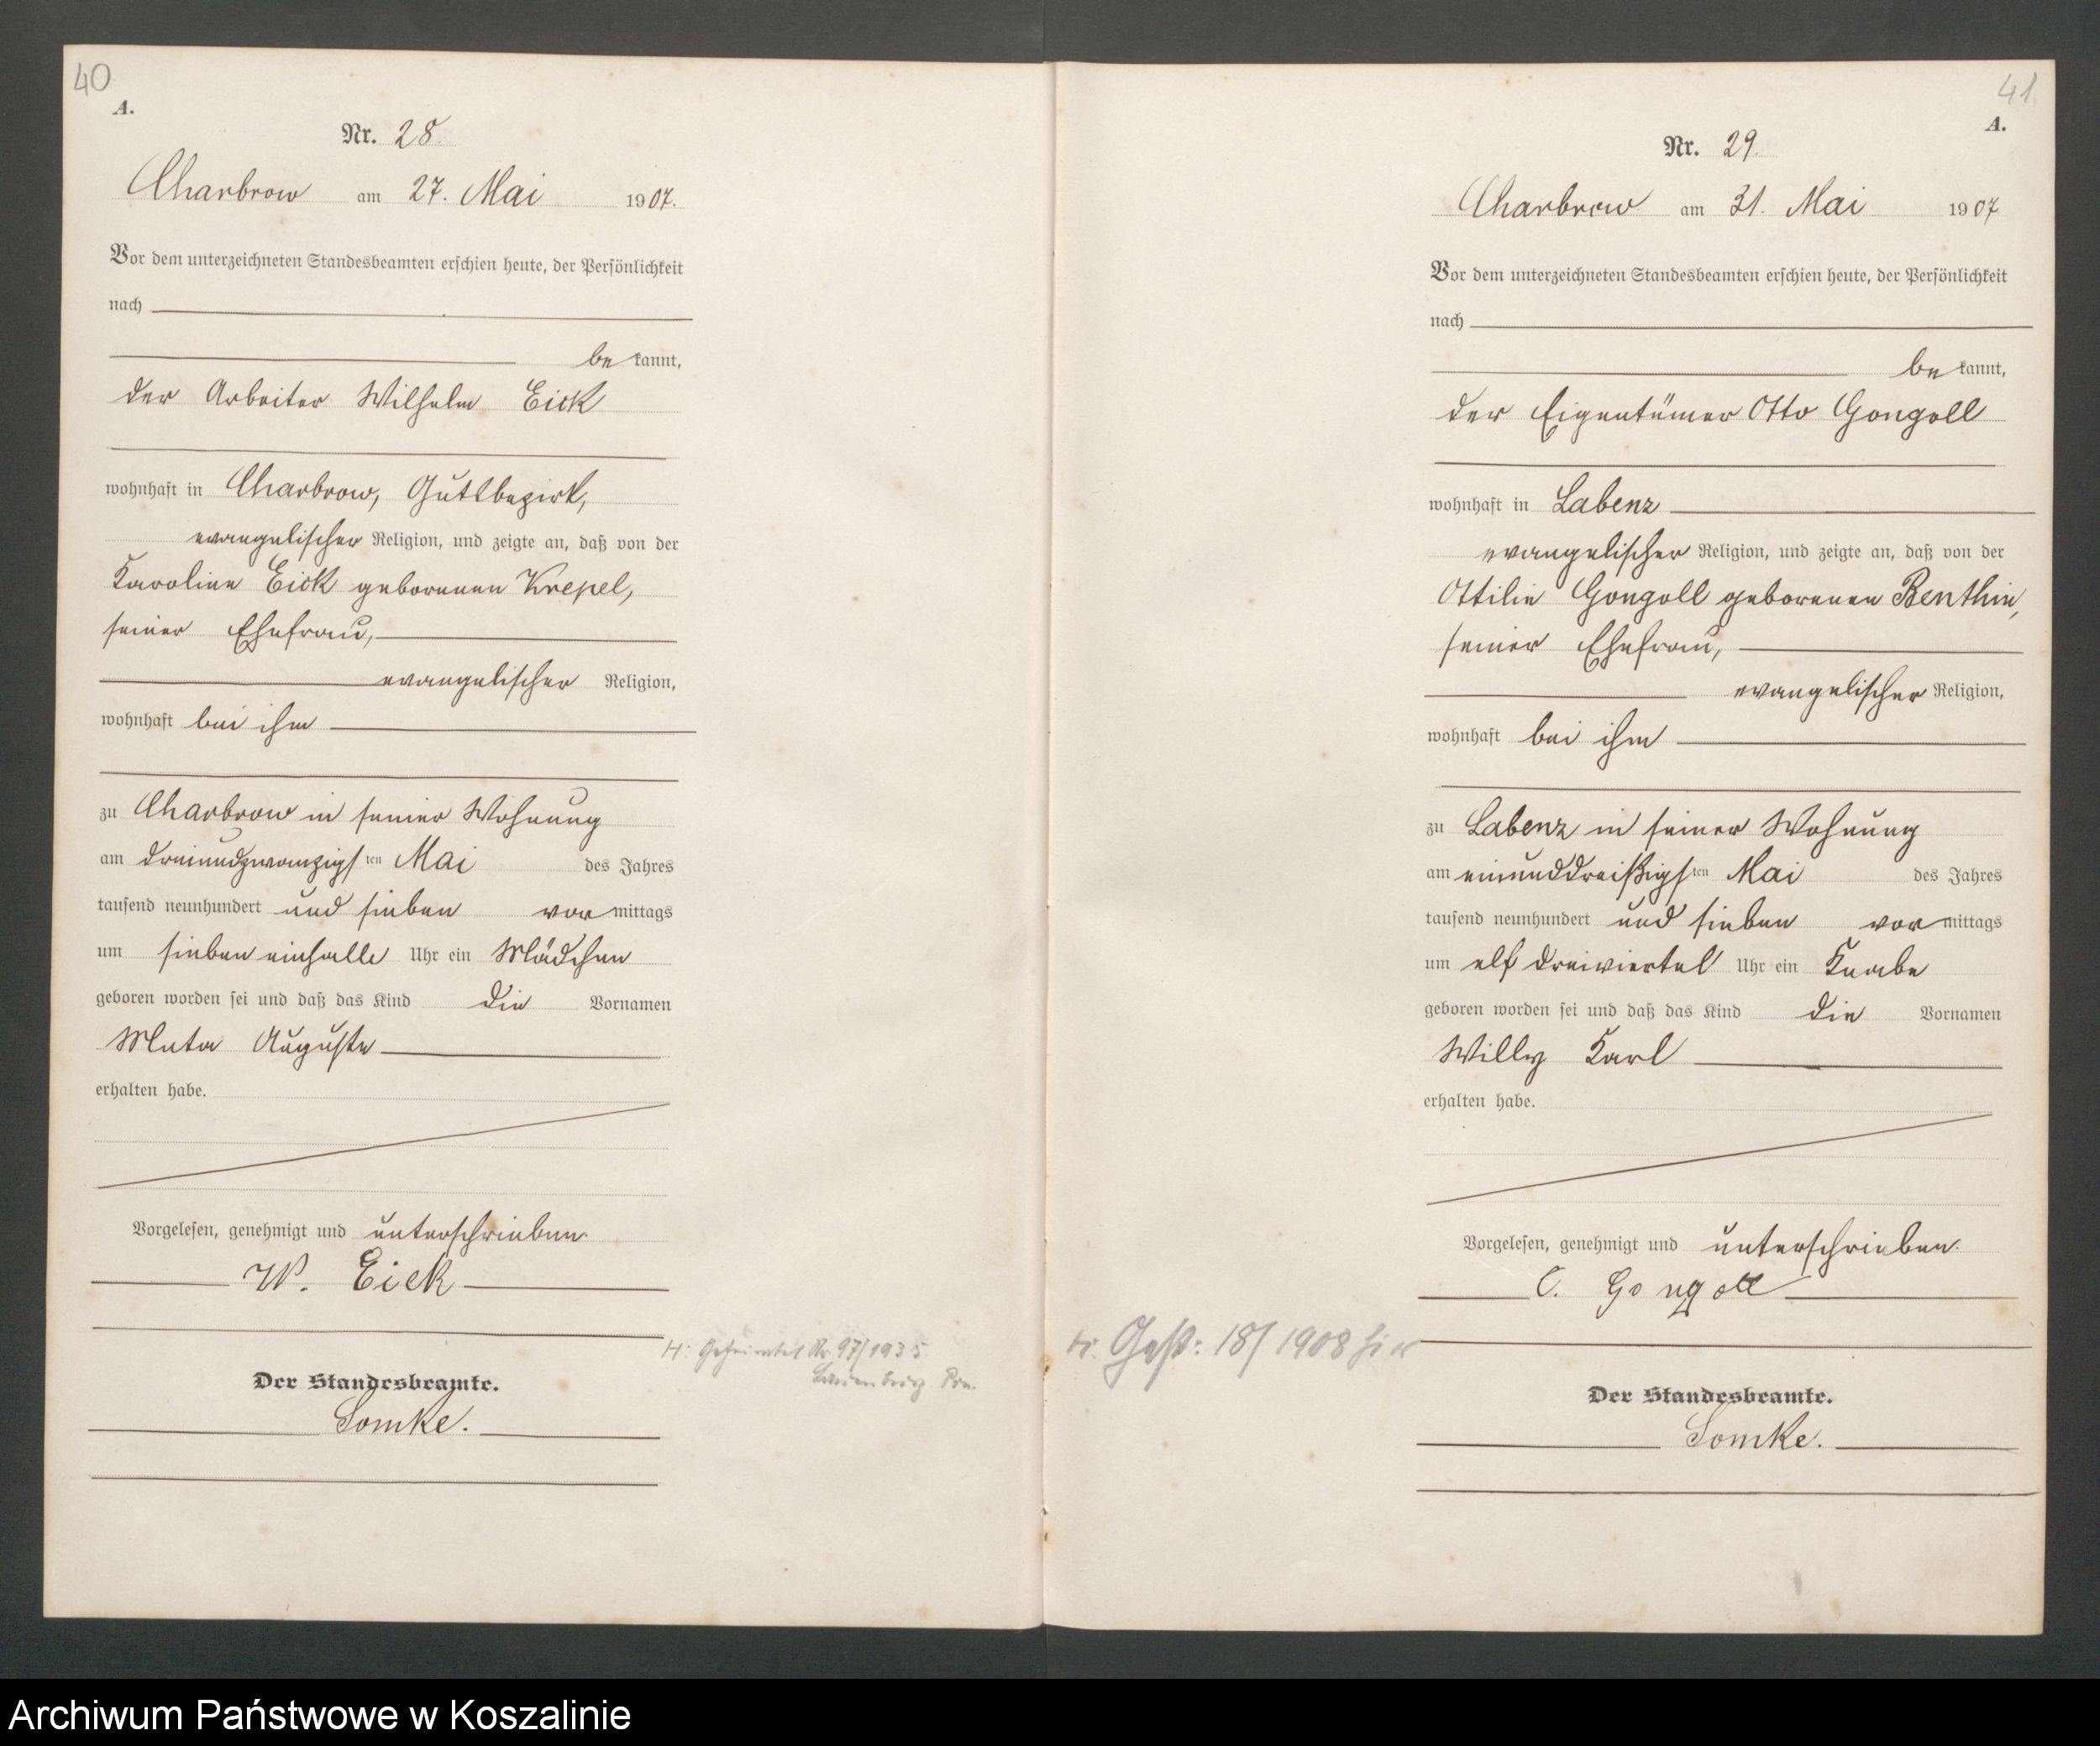 40
A.
Nr. 28.
Charbrow am 27. Mai 1907.
Vor dem unterzeichneten Standesbeamten erschien heute, der Persönlichkeit
nach
bekannt,
der Arbeiter Wilhelm Eick
wohnhaft in Charbrow, Gutsbezirk,
evangelischer Religion, und zeigte an, daß von der
Karoline Eick geborenen Krepel,
seiner Ehefrau,
evangelischer Religion,
wohnhaft bei ihm
zu Charbrow in seiner Wohnung
am dreiundzwanzigsten Mai des Jahres
tausend neunhundert und sieben vormittags
um sieben einhalb Uhr ein Mädchen
geboren worden sei und daß das Kind die Vornamen
Meta Auguste
erhalten habe.
Vorgelesen, genehmigt und unterschrieben.
W. Eick
H: Geheiratet Nr. 97/1935.
Lauenburg Pom.
Der Standesbeamte.
Somke.
41
A.
Nr. 29.
Charbrow am 31. Mai 1907
Vor dem unterzeichneten Standesbeamten erschien heute, der Persönlichkeit
nach
bekannt,
der Eigentümer Otto Gongoll
wohnhaft in Labenz
evangelischer Religion, und zeigte an, daß von der
Ottilie Gongoll geborenen Benthin,
seiner Ehefrau,
evangelischer Religion,
wohnhaft bei ihm
zu Labenz in seiner Wohnung
am einunddreißigsten Mai des Jahres
tausend neunhundert und sieben vormittags
um elf dreiviertel Uhr ein Knabe
geboren worden sei und daß das Kind die Vornamen
Willy Karl
erhalten habe.
Vorgelesen, genehmigt und unterschrieben.
O. Gongoll
Gest: 18/1908 hier
Der Standesbeamte.
Somke.
Archiwum Państwowe w Koszalinie